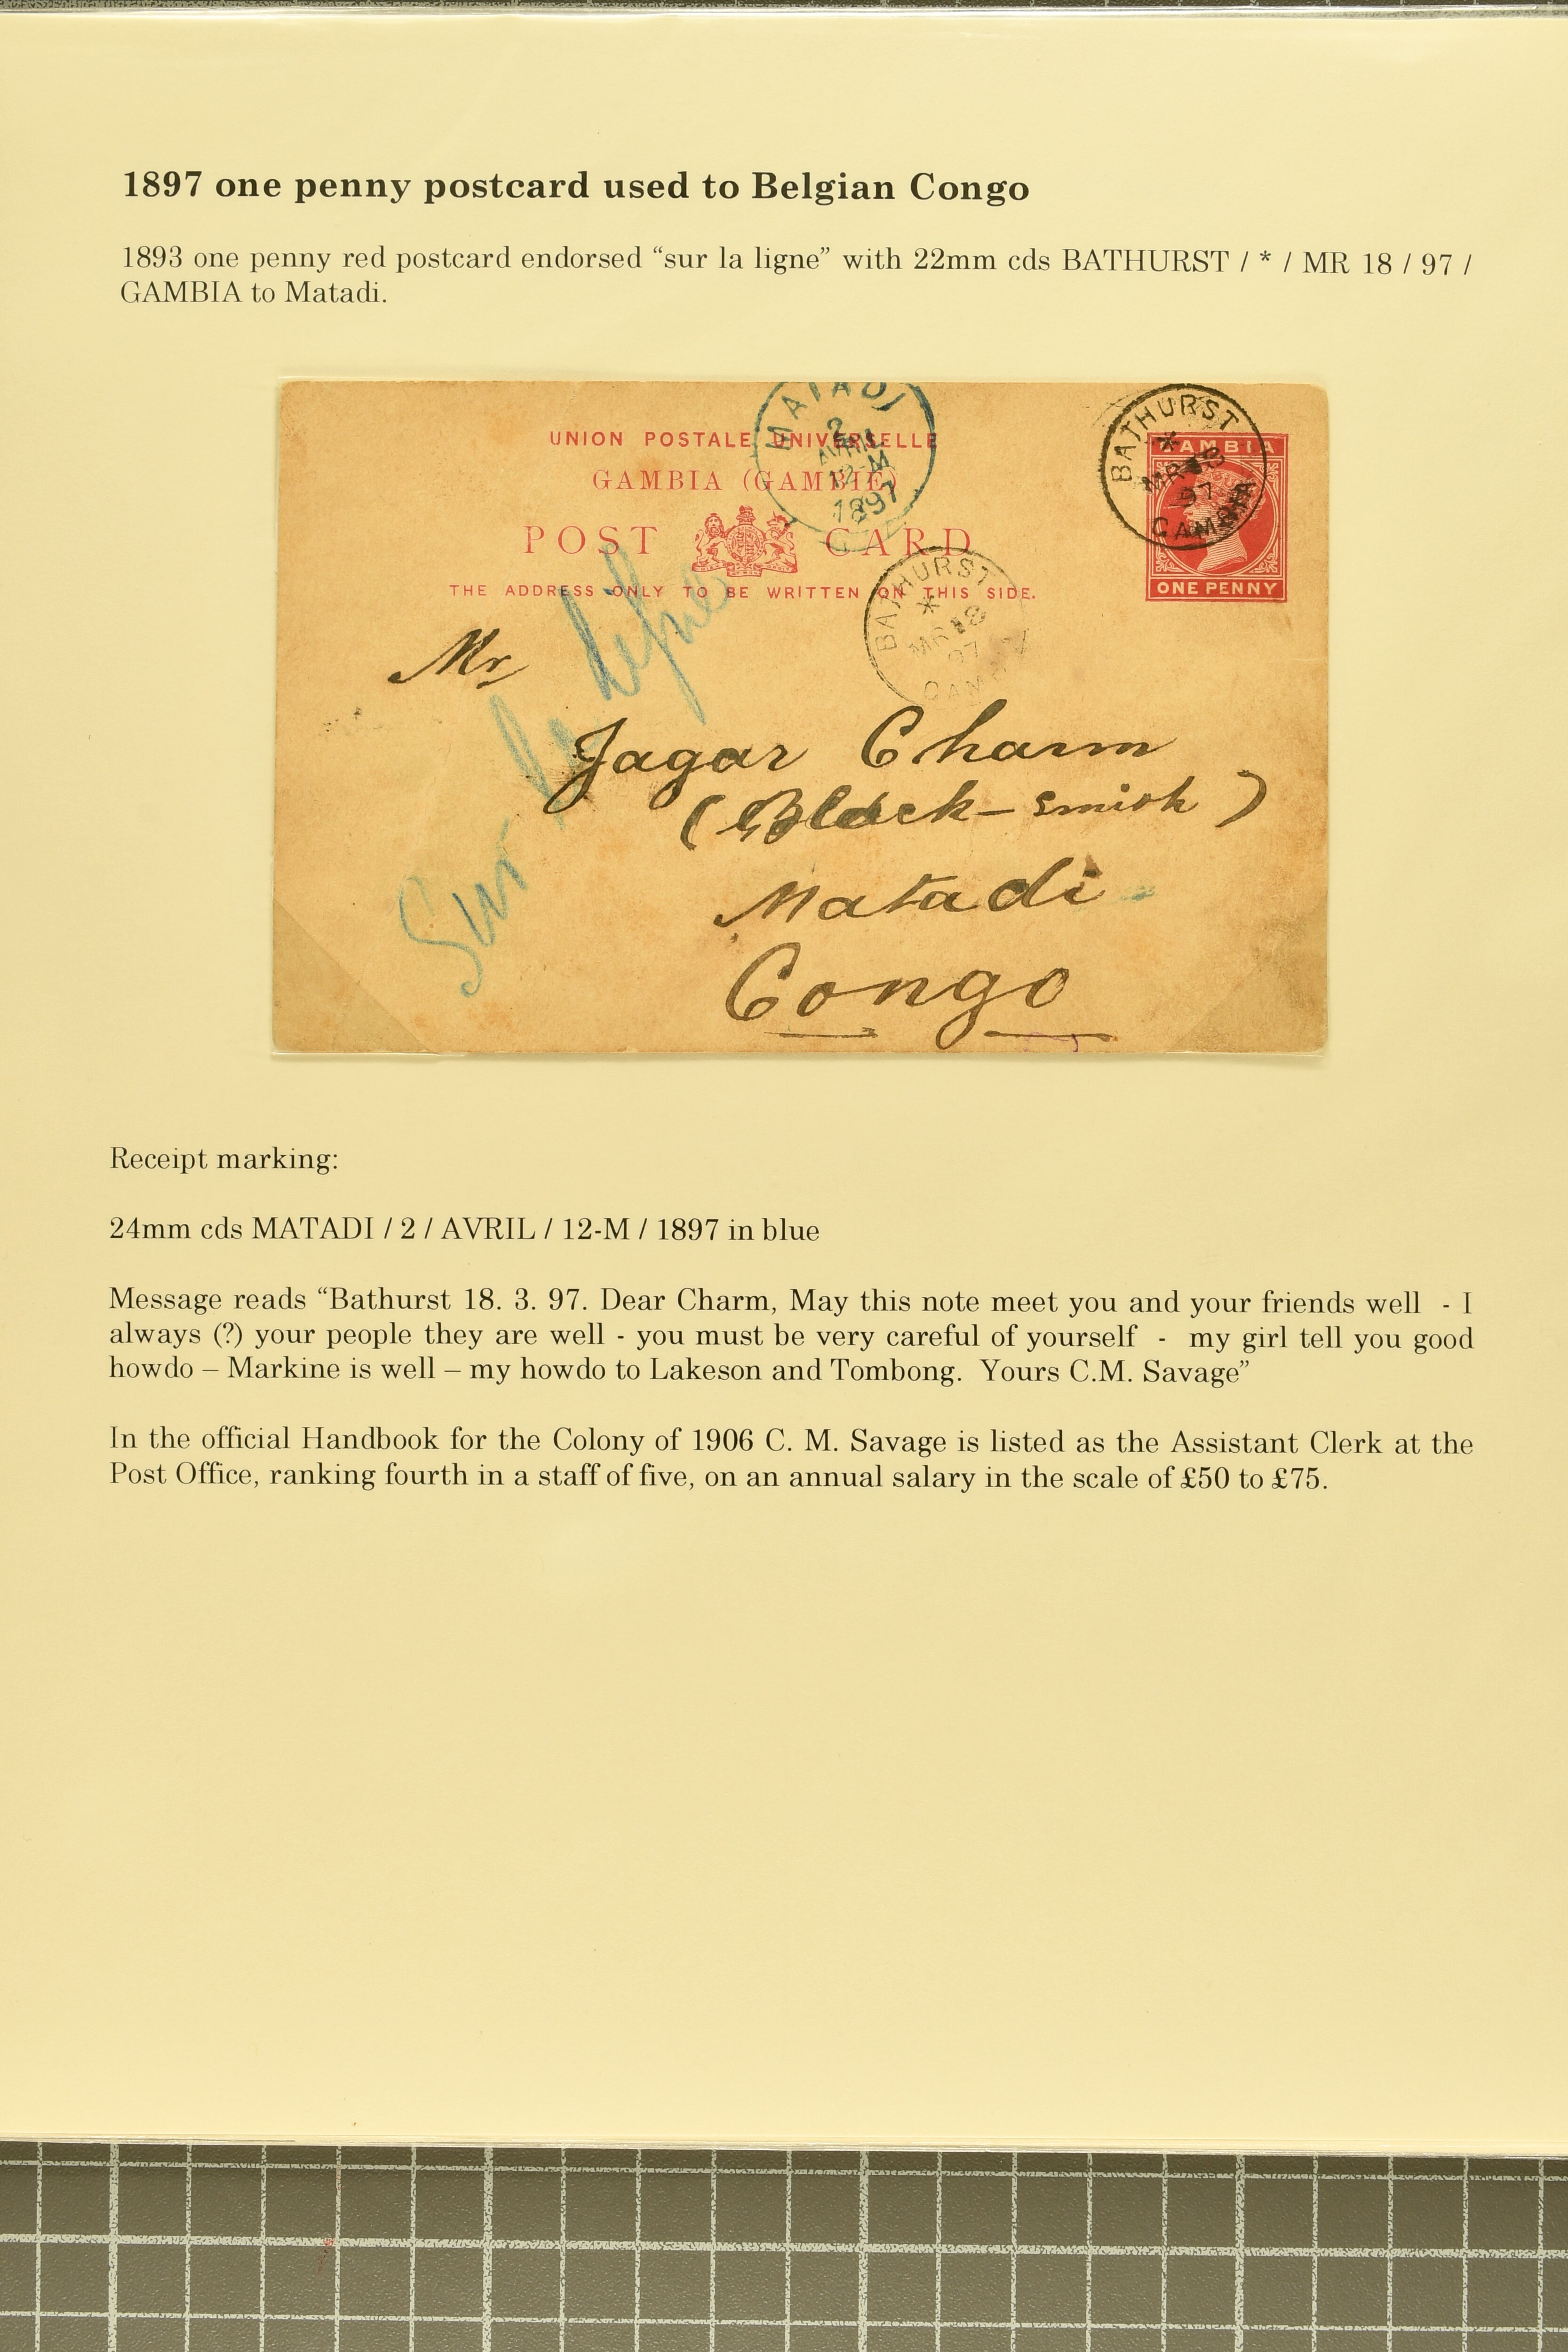 1897 one penny postcard used to Belgian Congo
1893 one penny red postcard endorsed “sur la ligne” with 22mm cds BATHURST / * / MR 18 / 97 /
GAMBIA to Matadi.
MATADI
2
AVRIL
12-M
1897
BATHURST
*
MR 18
97
GAMBIA
UNION POSTALE UNIVERSELLE
GAMBIA (GAMBIE)
POST CARD
THE ADDRESS ONLY TO BE WRITTEN ON THIS SIDE.
GAMBIA
ONE PENNY
BATHURST
*
MR 18
97
GAMBIA
Sur la ligne
Mr
Jagar Charm
(Black-smith)
Matadi
Congo
Receipt marking:
24mm cds MATADI / 2 / AVRIL / 12-M / 1897 in blue
Message reads “Bathurst 18. 3. 97. Dear Charm, May this note meet you and your friends well - I
always (?) your people they are well - you must be very careful of yourself - my girl tell you good
howdo – Markine is well – my howdo to Lakeson and Tombong. Yours C.M. Savage”
In the official Handbook for the Colony of 1906 C. M. Savage is listed as the Assistant Clerk at the
Post Office, ranking fourth in a staff of five, on an annual salary in the scale of £50 to £75.